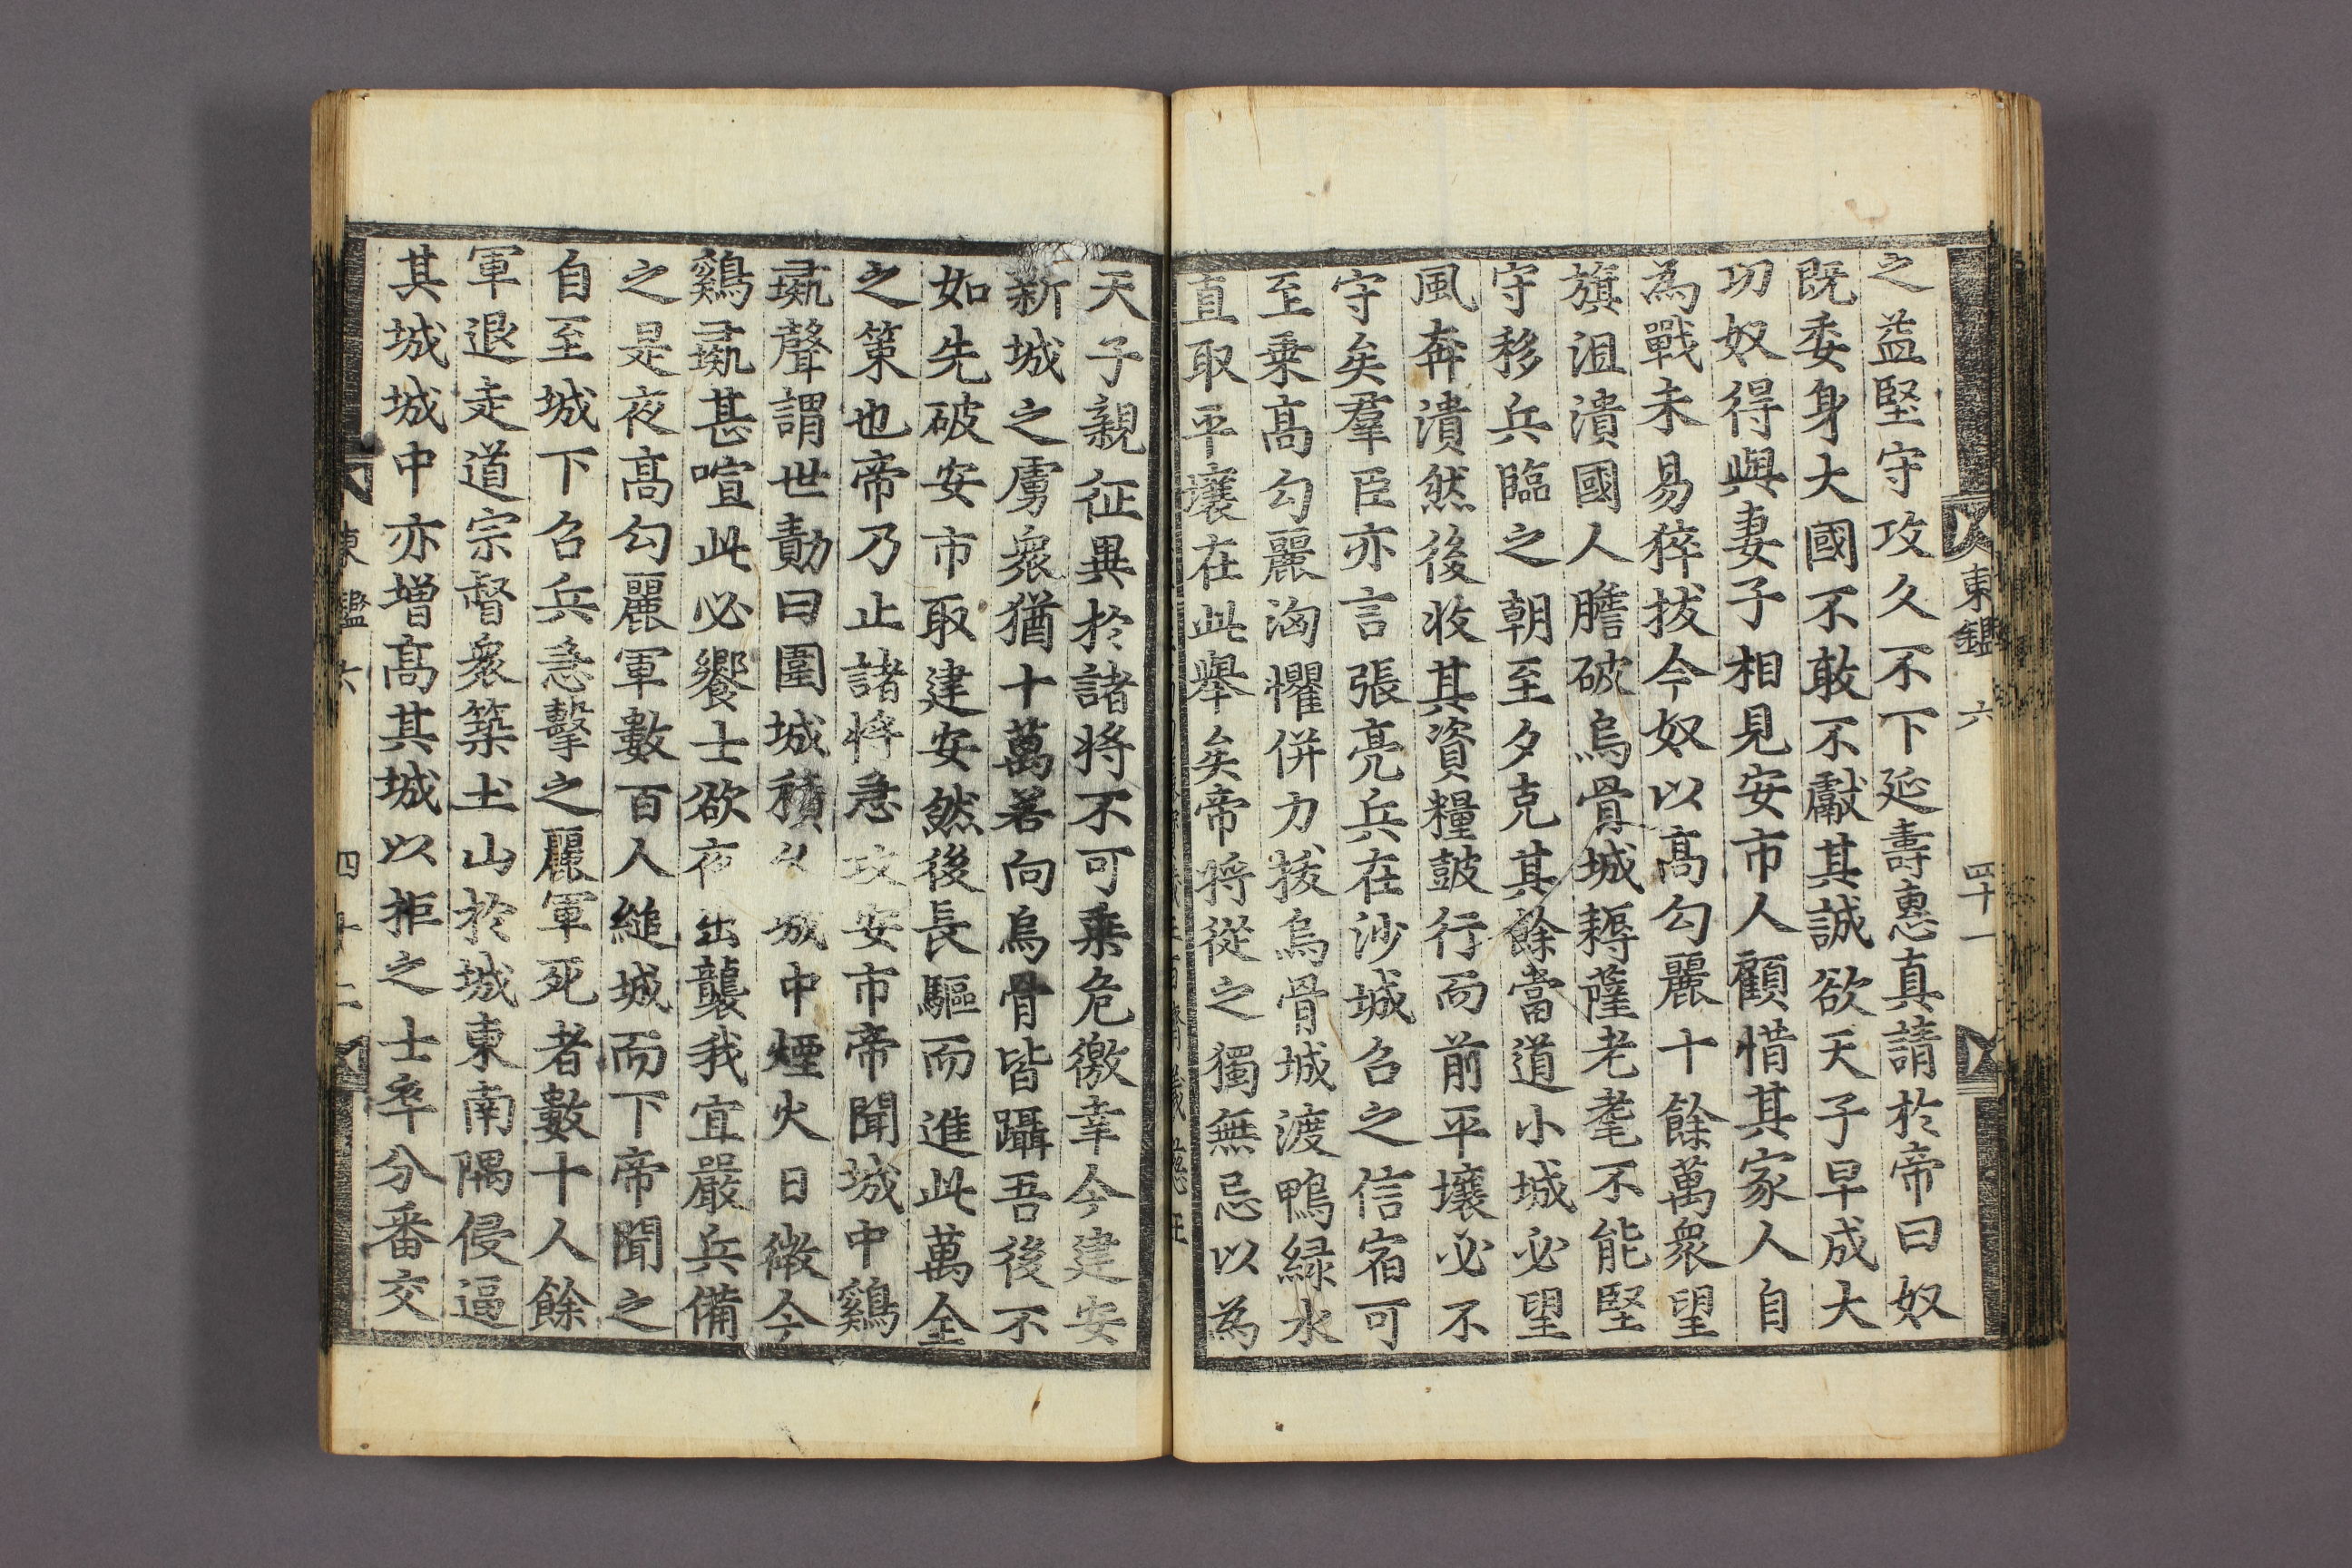 東鑑 六 四十一
之益堅守攻久不下延壽惠真請於帝曰奴
既委身大國不敢不獻其誠欲天子早成大
功奴得與妻子相見安市人顧惜其家人自
為戰未易猝拔今奴以高勾麗十餘萬衆望
旗沮潰國人膽破烏骨城耨薩老耄不能堅
守移兵臨之朝至夕克其餘當道小城必望
風奔潰然後收其資糧鼓行而前平壤必不
守矣羣臣亦言張亮兵在沙城召之信宿可
至乗高勾麗洶懼併力拔烏骨城渡鴨綠水
直取平壤在此舉矣帝將從之獨無忌以為
天子親征異於諸將不可乗危徼幸今建安
新城之虜衆猶十萬若向烏骨皆躡吾後不
如先破安市取建安然後長驅而進此萬全
之策也帝乃止諸將急攻安市帝聞城中鷄
彘聲謂世勣曰圍城積久城中煙火日微今
鷄彘甚喧此必饗士欲夜出襲我宜嚴兵備
之是夜高勾麗軍數百人縋城而下帝聞之
自至城下召兵急擊之麗軍死者數十人餘
軍退走道宗督衆築土山於城東南隅侵逼
其城城中亦增高其城以拒之士卒分番交
東鑑 六 四十二